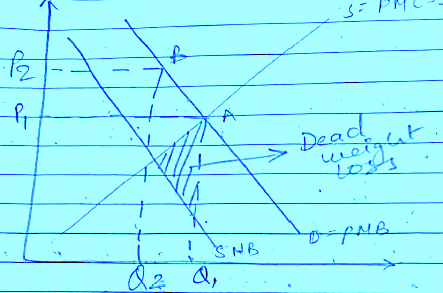 S = PMC
P2
B
P1
A
Dead
weight
Loss
D = PMB
SMB
Q2
Q1